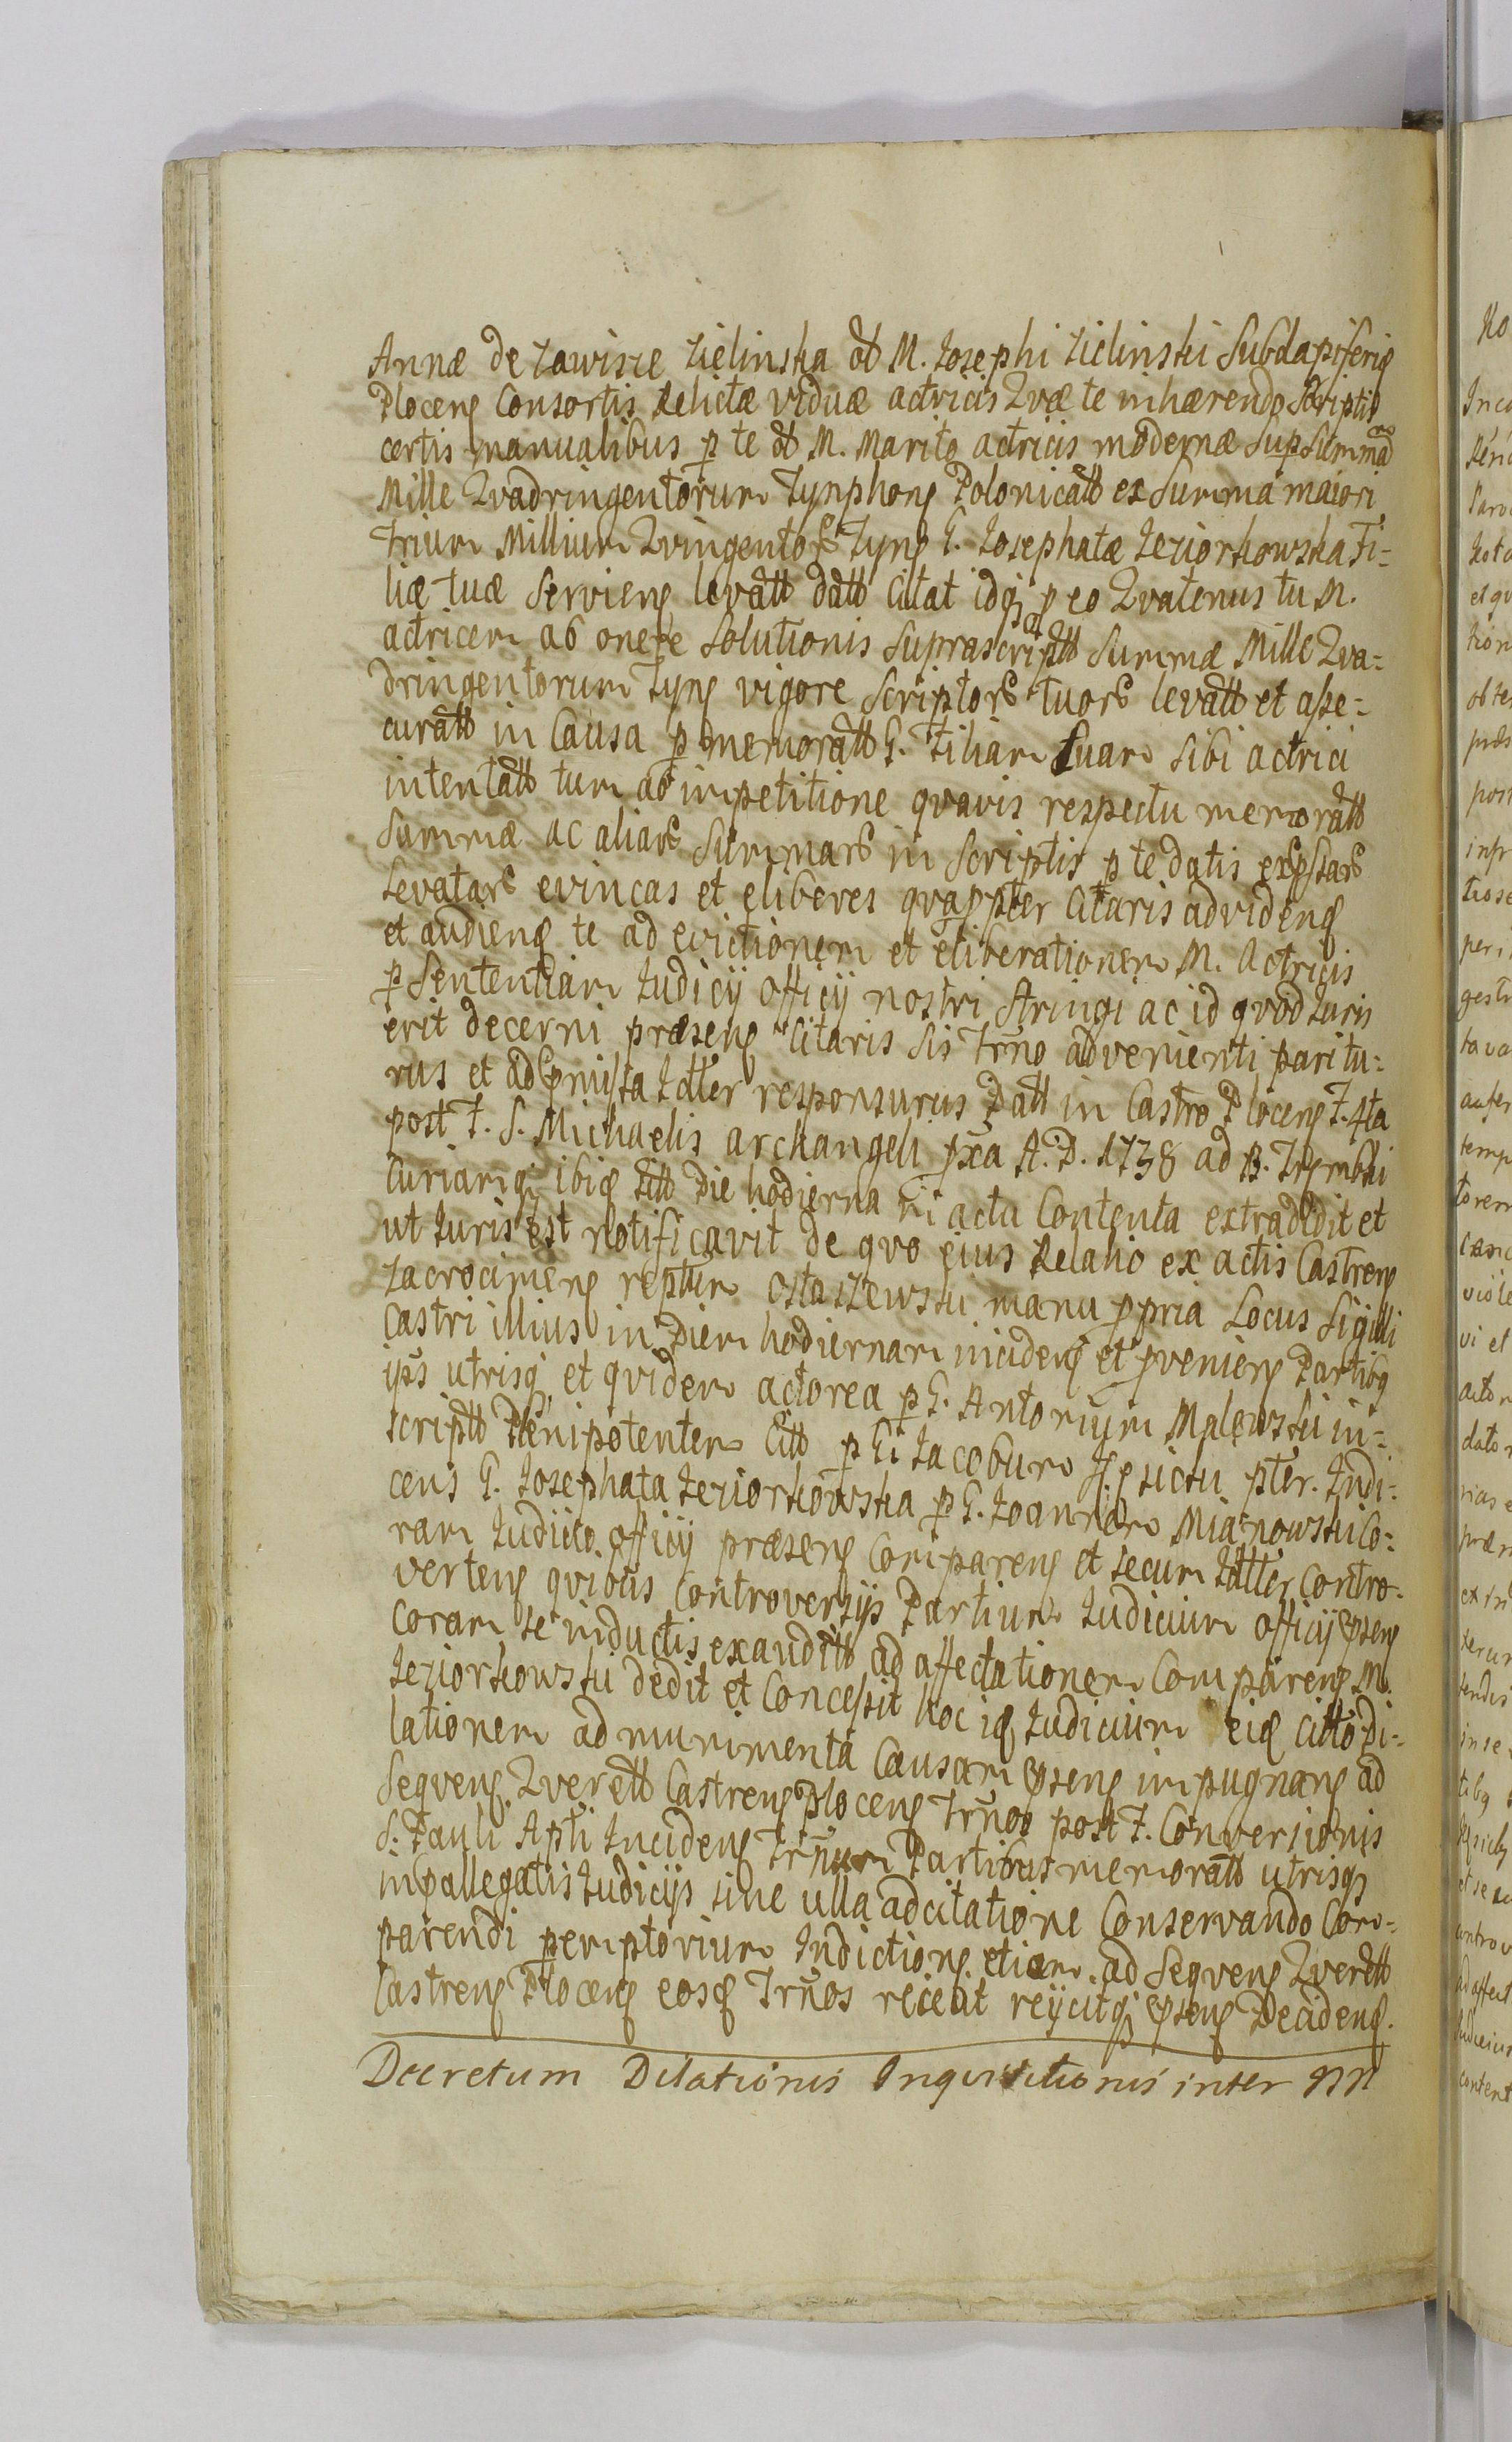 Annæ de Zawisze Zielinska ol M. Josephi Zielinski Subdapiferis
Plocens Consortis Relictæ viduæ actricis Qvæ te inhærendo Scriptis
certis manualibus p te ol M. Marito actricis modernæ sup Summa
Mille Qvadringentorum Tynphons Polonicatt ex Summa maiori
Trium Millium Qvingentors Tyns G. Josephatæ Jeziorkowska Fi-
liæ tuæ Serviens levatt datt Cittat idq p eo Qvatenus tu M.
actricem ab onere Solutionis Suprascriptt Summæ Mille Qva-
dringentorum Tyns vigore Scriptors tuors levatt et asse-
curatt in Causa p memoratt G. Filiam Suam Sibi actrici
intentatt tum ab impetitione qvavis respectu memoratt
Summæ ac aliars Summars in Scriptis p te datis expssars
levatars evincas et eliberes qvappter Citaris ad videns
et audiens te ad evictionem et eliberationem M. Actricis
p Sententiam Judicij officij nostri Stringi ac id qvod Juris
erit decerni præsens Citaris Sis Trno advenienti paritu-
rus et ad pmissa Jttter responsurus Datt in Castro Plocens F. 4ta
post F. S. Michaelis archangeli pxa A. D. 1738 ad B. Trembki
Curiamq ibiq Sitt Die hodierna in actu Contenta extradidit et
ut Juris est notificavit de qvo eius Relatio ex actis Castrens
Zacrocimens reptur Ostaszewski manu ppria Locus Sigilli
Castri illius in Diem hodiernam incidens et pveniens Partibq
ips utrisq et qvidem actorea p G. Antonium Malewski in-
scriptt Plenipotentem Citt p G. Jacobum pter. Indi-
cens G. Josephata Jeziorkowska p G. Joannem Mianowski Co-
ram Judicio officij præsens Comparens et secum Jttter Contro-
vertens qvibus Controversijs Partium Judicium officij psens
Coram se inductis exauditt ad affectationem Comparens M.
Jeziorkowski dedit et Concessit hoc iq Judicium eiq citto Di-
lationem ad munimenta Causam psens impugnans ad
Seqvens Qverett Castrens Plocens Trnos post F. Conversionis
S. Pauli Apti Incidens Trnum Partibus memoratt utrisq
in pallegatis Judicijs sine ulla adcitatione Conservando Com-
parendi pemptorium Indictions etiam ad Seqvens Qverett
Castrens Plocens eosq Trnos reiecit reijcitq psens Decidens.
Decretum Dilationis Inqvisitionis inter MM